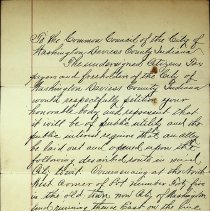 To the Common Council of the City of
Washington Daviess County Indiana
The undersigned Citizens Tax
payers and freeholders of the City of
Washington Daviess County Indiana
would respectfully petition your
honorable body and represent that
it will be of public utility and that
the interest requires that an alley
be laid out and opened upon the
following described route in said
City to wit: Commencing at the North
West Corner of Lot number Forty five
in the old town now City of Washington
and running thence East on the line